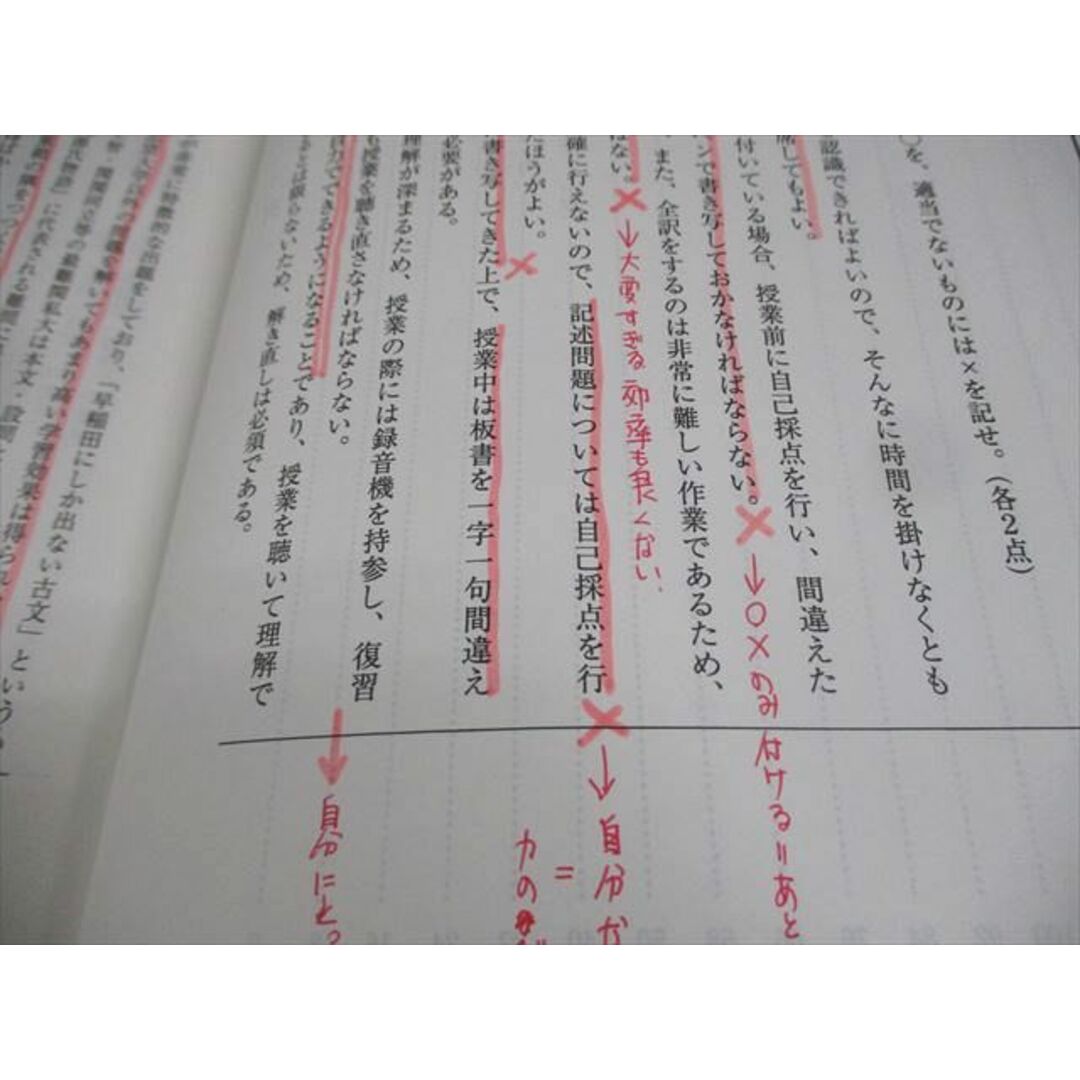 ○を。適当でないものには×を記せ。（各2点）
認識できればよいので、そんなに時間を掛けなくとも
席してもよい。
付いている場合、授業前に自己採点を行い、間違えた
ンで書き写しておかなければならない。×→○×のみ付ける＝あと
また、全訳をするのは非常に難しい作業であるため、
はない。×→大変すぎる 効率も良くない。
確に行えないので、記述問題については自己採点を行×→自分
たほうがよい。×
書き写してきた上で、授業中は板書を一字一句間違え
必要がある。
理解が深まるため、授業の際には録音機を持参し、復習
も授業を聴き直さなければならない。
自力でできるようになることであり、授業を聴いて理解で→自分にとっ
るとは限らないため、解き直しは必須である。
が非常に特徴的な出題をしており、「早稲田にしか出ない古文」という
の問題を解いてもあまり高い学習効果は得られ
に代表される最難関私大は本文・設問